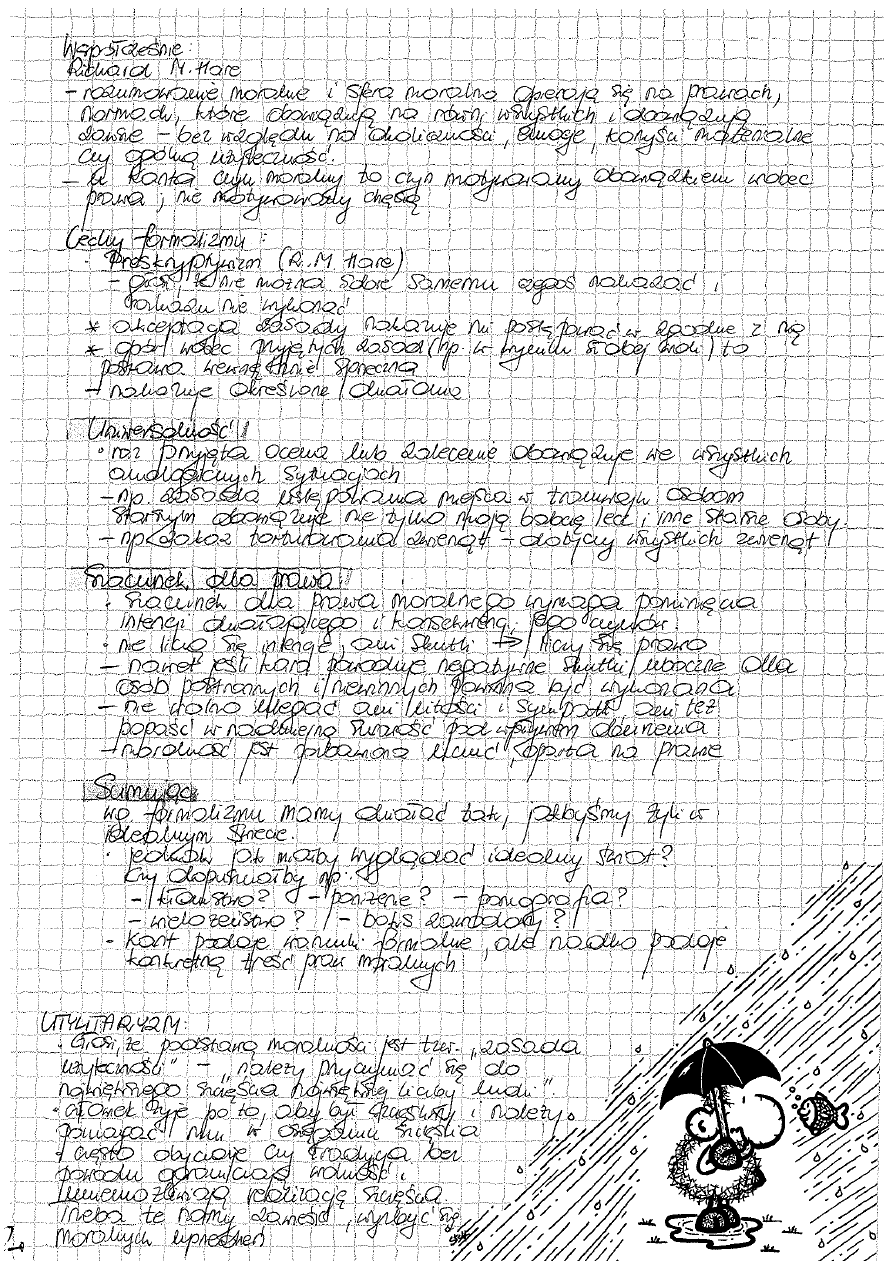 Współcześnie:
Richard M. Hare
- rozumowanie moralne i sfera moralna opierają się na prawach,
normach, które obowiązują na równi wszystkich i obowiązują
zawsze - bez względu na okoliczności, emocje, korzyści materialne
czy ogólną użyteczność.
- u Kanta czyn moralny to czyn motywowany obowiązkiem wobec
prawa, nie motywowany chęcią
Cechy formalizmu:
• Preskryptywizm (R. M Hare)
- głosi, że nie można sobie samemu czegoś nakazać i
rozkazu nie wykonać
* akceptacja zasady nakazuje mi postępować w zgodzie z nią
* opór wobec przyjętych zasad (np. w wyniku słabej woli) to
postawa wewnętrznie sprzeczna
- nakazuje określone działania
Uniwersalność
• raz przyjęta ocena lub zalecenie obowiązuje we wszystkich
analogicznych sytuacjach
- np. zasada ustępowania miejsca w tramwaju osobom
starszym obowiązuje nie tylko moją babcię lecz i inne starsze osoby.
- np. zakaz torturowania zwierząt - dotyczy wszystkich zwierząt
Szacunek dla prawa
• Szacunek dla prawa moralnego wymaga pominięcia
intencji działającego i konsekwencji jego czynów.
• nie liczą się intencje, ani skutki → liczy się prawo
- nawet jeśli kara powoduje negatywne skutki uboczne dla
osób postronnych i niewinnych powinna być wykonana
- nie wolno ulegać ani litości i sympatii ani też
popaść w nadmierną surowość pod wpływem oburzenia
- moralność jest pozbawiona uczuć, oparta na prawie
Sumując
wg. formalizmu mamy działać tak, jakbyśmy żyli w
idealnym świecie.
• jednak jak miałby wyglądać idealny świat?
Czy dopuszczałby np.:
- kłamstwo? - poniżenie? - pornografia?
- wielożeństwo? - boks zawodowy?
• Kant podaje warunki formalne, ale rzadko podaje
konkretną treść praw moralnych
UTYLITARYZM:
• Głosi, że podstawą moralności jest tzw. „zasada
użyteczności" - „należy przyczyniać się do
największego szczęścia największej liczby ludzi".
• człowiek żyje po to, aby być szczęśliwy i należy
pomagać mu w osiągnięciu szczęścia
- często obyczaje czy tradycja bez
powodu ograniczają wolność i
uniemożliwiają realizację szczęścia.
Trzeba te normy zmienić, wyzbyć się
moralnych uprzedzeń
7.